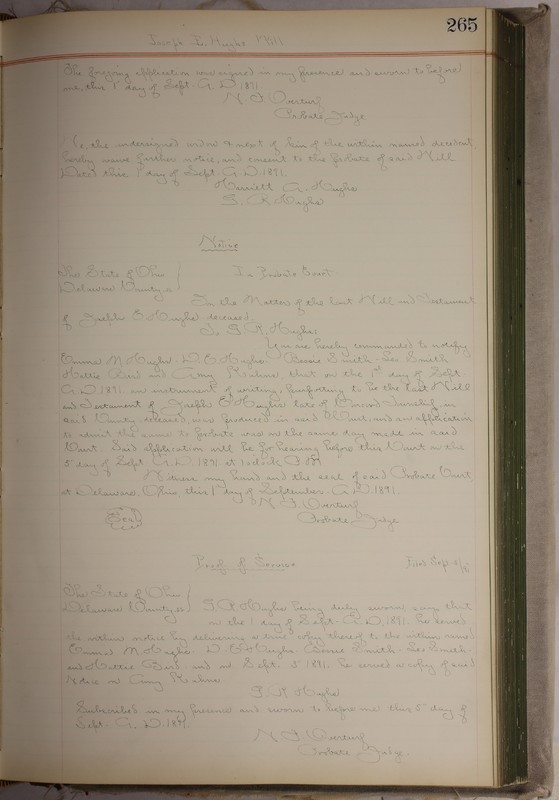 265
Joseph E. Hughs Will
The foregoing application was signed in my presence and sworn to before
me, this 1st day of Sept. A.D. 1891
N F Overturf
Probate Judge
We, the undersigned widow & next of kin of the within named decedent,
hereby waive further notice, and consent to the probate of said Will
Dated this 1st day of Sept. A.D. 1891.
Harriett A. Hughs
S. R Hughs
Notice
The State of Ohio
Delaware County, ss
In Probate Court
In the Matter of the Last Will and Testament
of Joseph E Hughs deceased.
To S. R. Hughs
You are hereby commanded to notify
M. Hughs. D. E Hughs. Bessie Smith. Leo Smith
Hattie and Amy that on the 1st day of Sept
A.D. 1891 an instrument of writing, purporting to be the Last Will
and Testament of Joseph E Hughs late of Township, in
said County, deceased, was produced in said Court, and an application
to admit the same to probate was on the same day made in said
Court. Said application will be for hearing before this Court on the
5 day of Sept. A.D. 1891, at 1 o'clock P.M.
Witness my hand and the seal of said Probate Court
at Delaware, Ohio, this 1st day of September A.D. 1891.
Seal
N. F. Overturf
Probate Judge
Proof of Service
Filed Sept 5/91
The State of Ohio
Delaware County, ss
S. R Hughs being duly sworn says that
on the 1 day of Sept. A.D. 1891. he served
the within notice by delivering a true copy thereof to the within named
M. Hughs. D. E Hughs. Bessie Smith. Leo Smith.
and Hattie and on Sept. 5 1891. he served a copy of said
Notice on Amy
S. R Hughs
Subscribed in my presence and sworn to before me this 5th day of
Sept. A. D. 1891.
N F Overturf
Probate Judge.